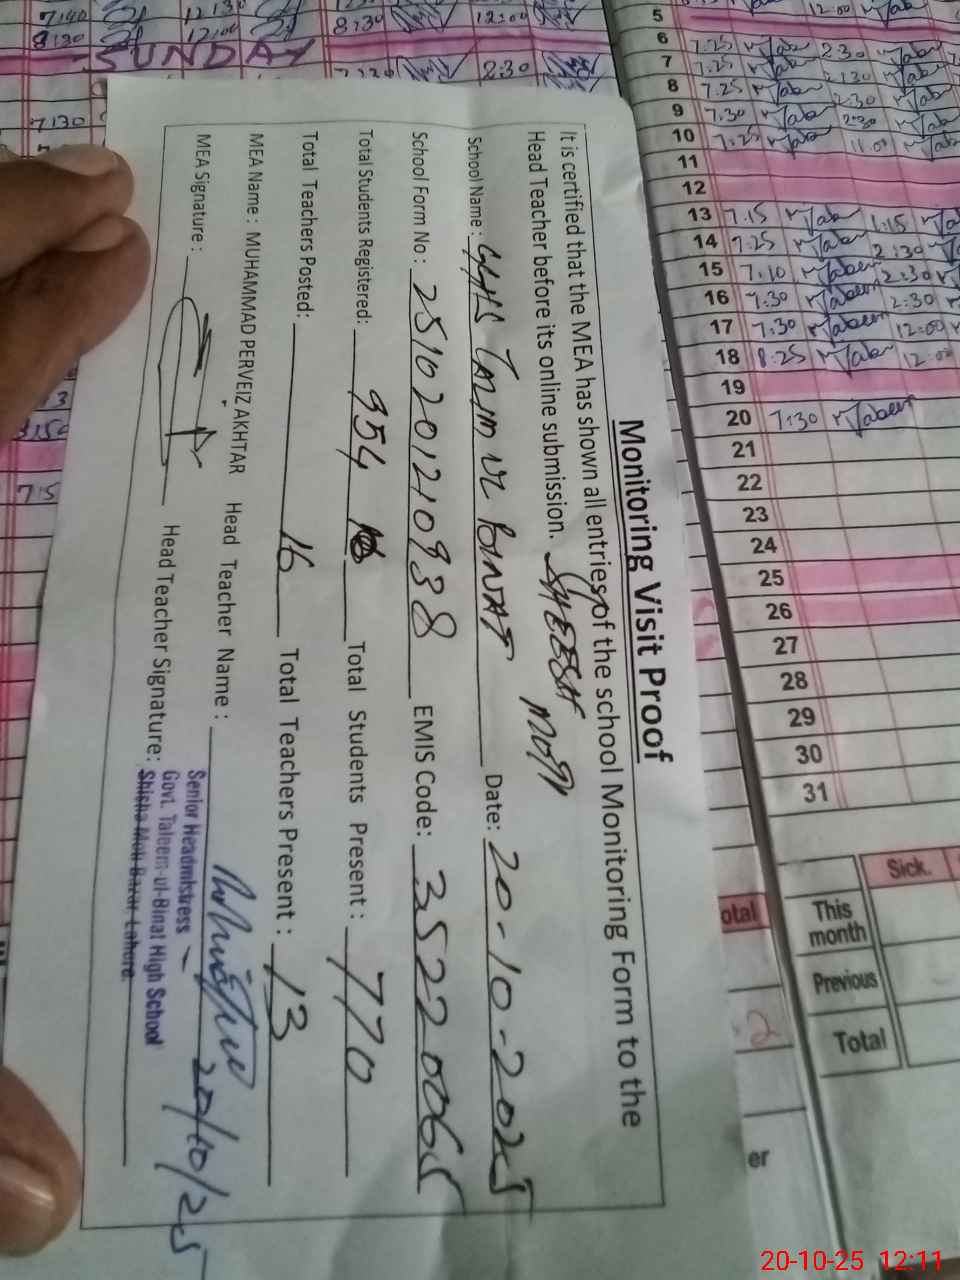 Monitoring Visit Proof
It is certified that the MEA has shown all entries of the school Monitoring Form to the
Head Teacher before its online submission. SHEESH MOTI
School Name: GGHS TALIM UL BINAT Date: 20-10-2025
School Form No: 2510201210938 EMIS Code: 35220065
Total Students Registered: 954 Total Students Present: 770
Total Teachers Posted: 16 Total Teachers Present: 13
MEA Name: MUHAMMAD PERVEIZ AKHTAR Head Teacher Name:
MEA Signature: Head Teacher Signature:
20/10/25
Senior Headmistress
Govt. Taleem-ul-Binat High School
Shisha Moti Bazar Lahore
SUNDAY
7:40 12:30 8:30 12:00
8:30 12:00
2:30
7:30
5 12:00
6 7:25 2:30
7 7:25 2:30
8 7:25 2:30
9 7:30 2:30
10 7:25 11:00
11
12
13 7:15 1:15
14 7:25 2:30
15 7:10 2:30
16 7:30 2:30
17 7:30 12:00
18 8:25 12:00
19
20 7:30
21
22
23
24
25
26
27
28
29
30
31
Sick.
This month
Previous
Total
otal
2
er
20-10-25 12:11